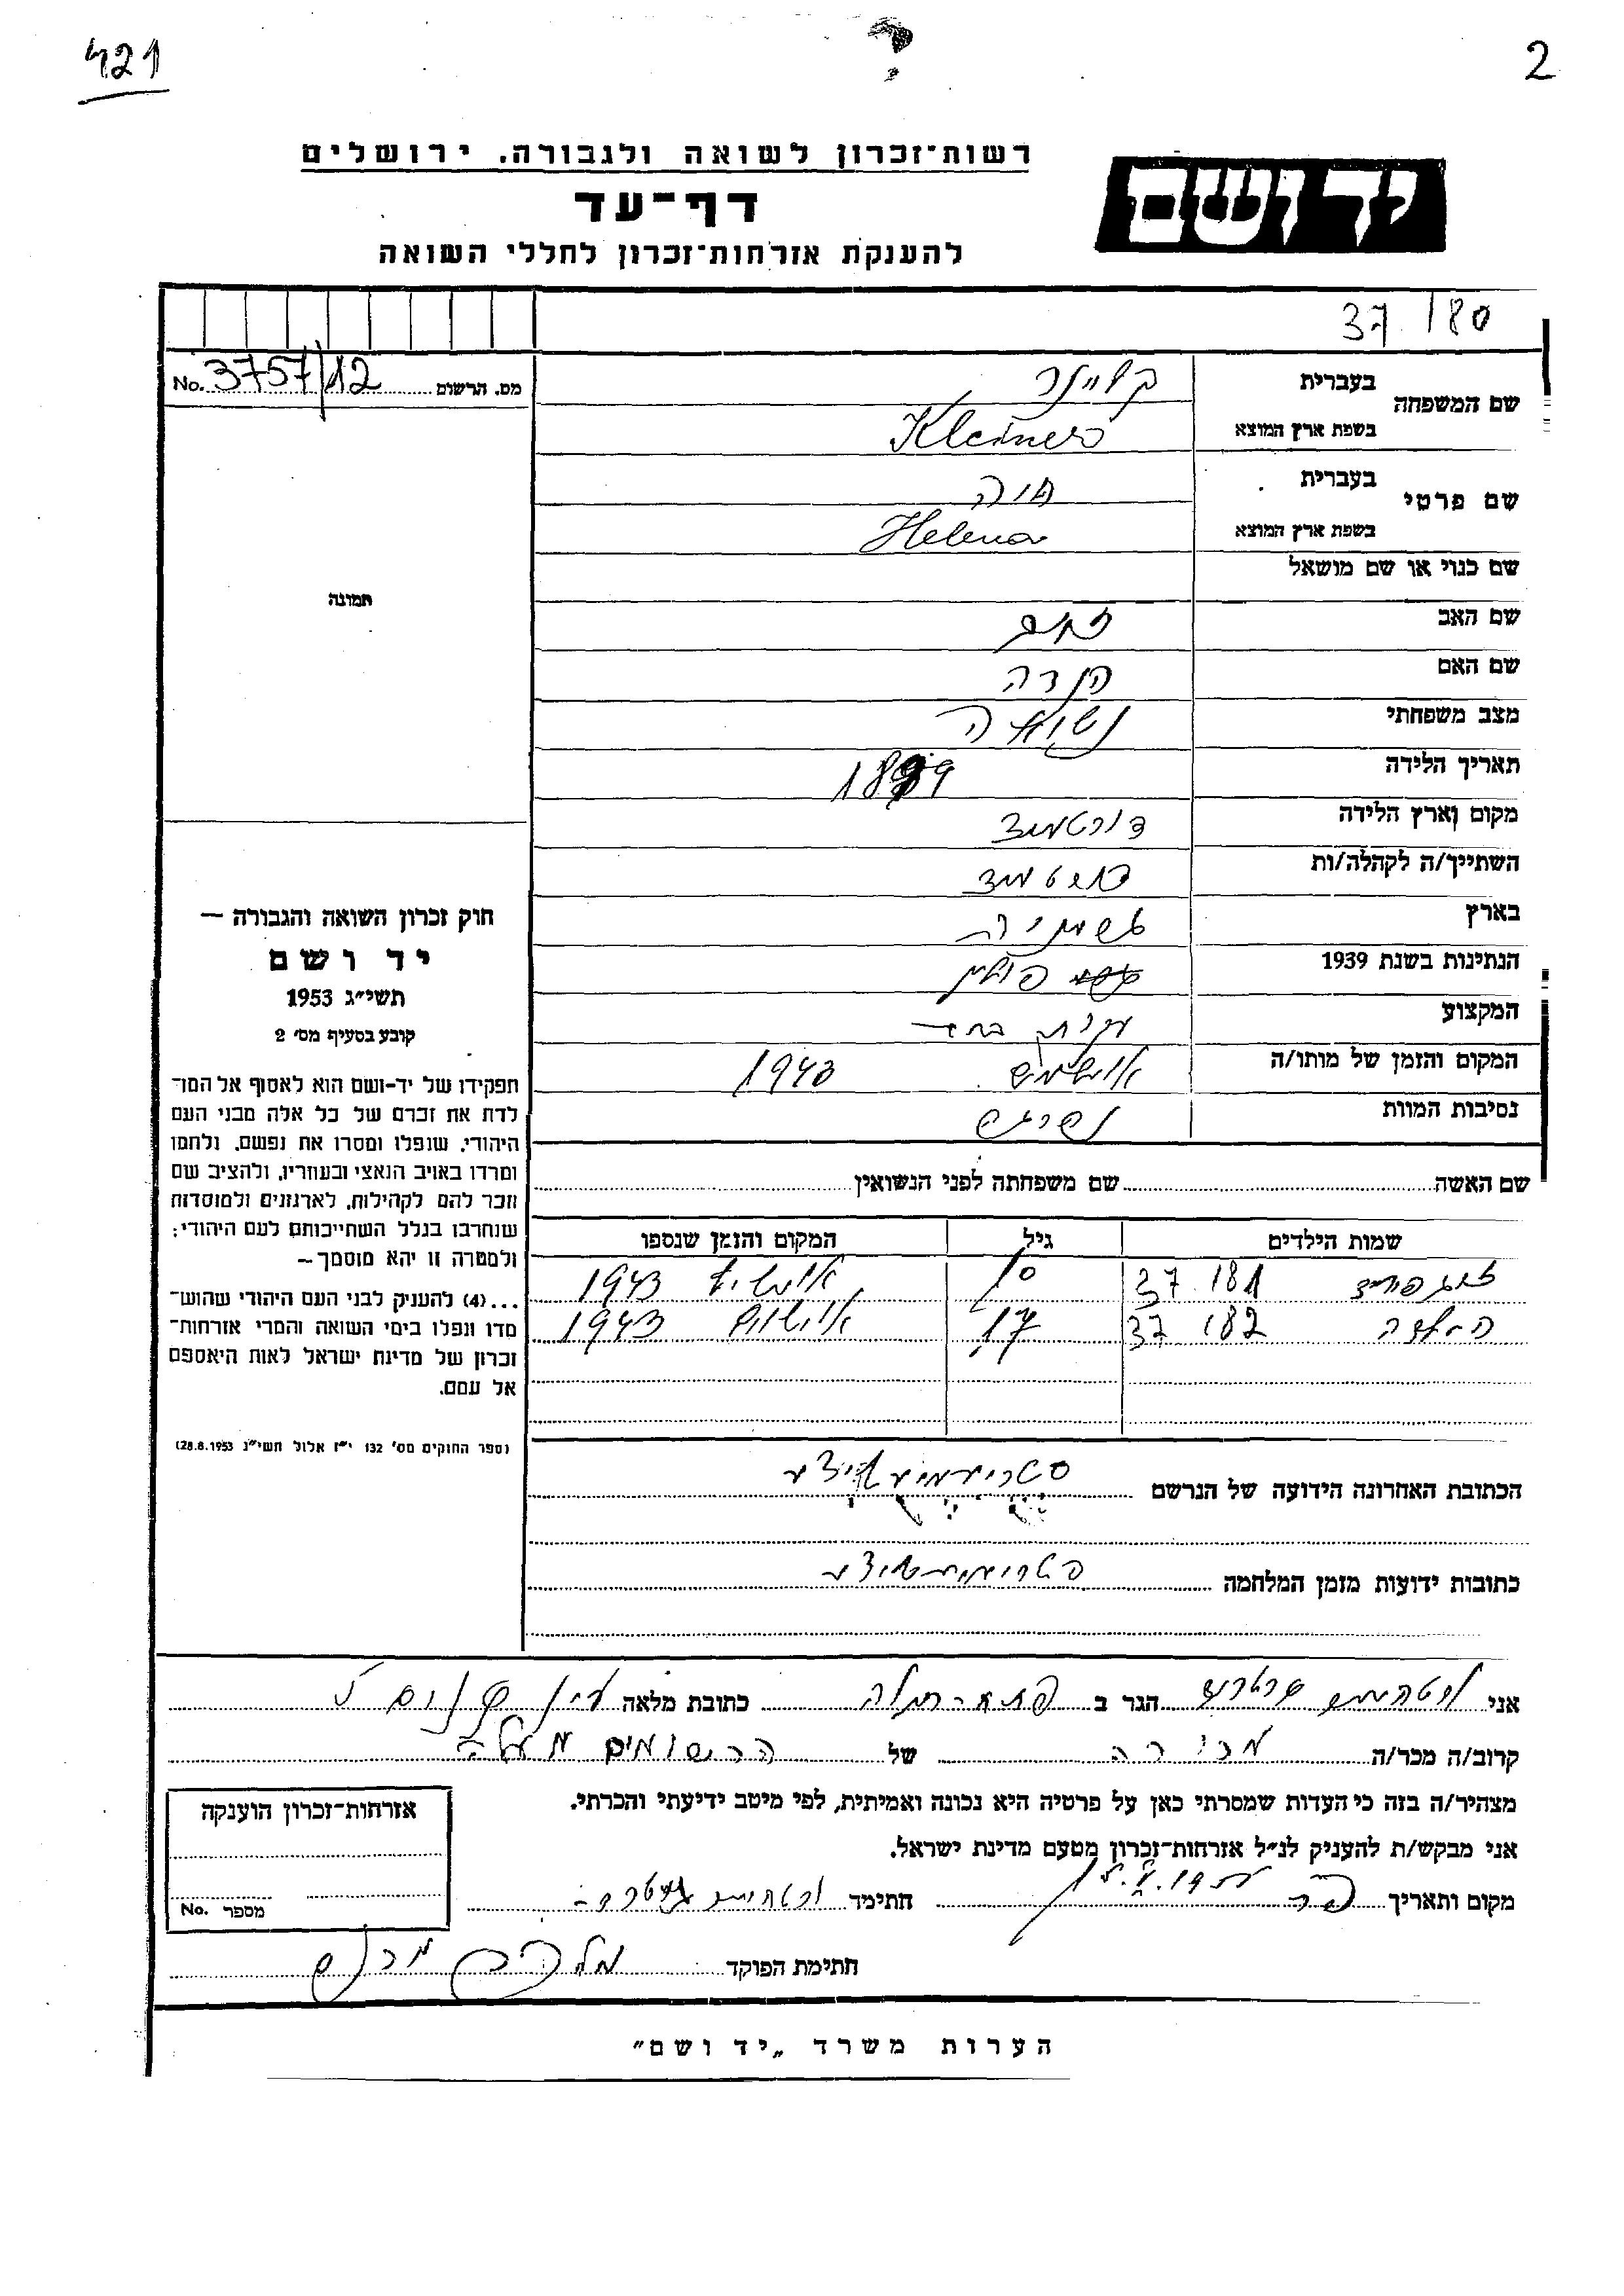 421
2
רשות־זכרון לשואה ולגבורה. ירושלים
יד ושם
דף־עד
להענקת אזרחות־זכרון לחללי השואה
37 180
מס. הרשום 3757/12 No.
שם המשפחה
בעברית קליינר
בשפת ארץ המוצא Kleiner
שם פרטי
בעברית חיה
בשפת ארץ המוצא Helena
שם כנוי או שם מושאל
שם האב
שם האם הנדה
מצב משפחתי נשואה
תאריך הלידה 1899
מקום וארץ הלידה דורטמונד
השתייך/ה לקהלה/ות דורטמונד
בארץ גרמניה
הנתינות בשנת 1939 פולין
המקצוע עקרת בית
המקום והזמן של מותו/ה אושויץ 1943
נסיבות המוות
תמונה
חוק זכרון השואה והגבורה —
יד ושם
תשי״ג 1953
קובע בסעיף מס׳ 2
תפקידו של יד-ושם הוא לאסוף אל המו־
לדת את זכרם של כל אלה מבני העם
היהודי, שנפלו ומסרו את נפשם, נלחמו
ומרדו באויב הנאצי ובעוזריו, ולהציב שם
וזכר להם לקהילות, לארגונים ולמוסדות
שנחרבו בגלל השתייכותם לעם היהודי;
ולמטרה זו יהא מוסמך—
...(4) להעניק לבני העם היהודי שהוש־
מדו ונפלו בימי השואה והמרי אזרחות־
זכרון של מדינת ישראל לאות היאספם
אל עמם.
(ספר החוקים מס׳ 132 י״ז אלול תשי״ג 28.8.1953)
שם האשה שם משפחתה לפני הנשואין
שמות הילדים גיל המקום והזמן שנספו
37 181 10 אושויץ 1943
הילדה 37 182 17 אושויץ 1943
הכתובת האחרונה הידועה של הנרשם
כתובות ידועות מזמן המלחמה
אני הגר ב כתובת מלאה
קרוב/ה מכר/ה מכירה של הרשומים מעלה
מצהיר/ה בזה כי העדות שמסרתי כאן על פרטיה היא נכונה ואמיתית, לפי מיטב ידיעתי והכרתי.
אני מבקש/ת להעניק לנ״ל אזרחות־זכרון מטעם מדינת ישראל.
מקום ותאריך חתימה
חתימת הפוקד
אזרחות־זכרון הוענקה
מספר No.
הערות משרד „יד ושם״